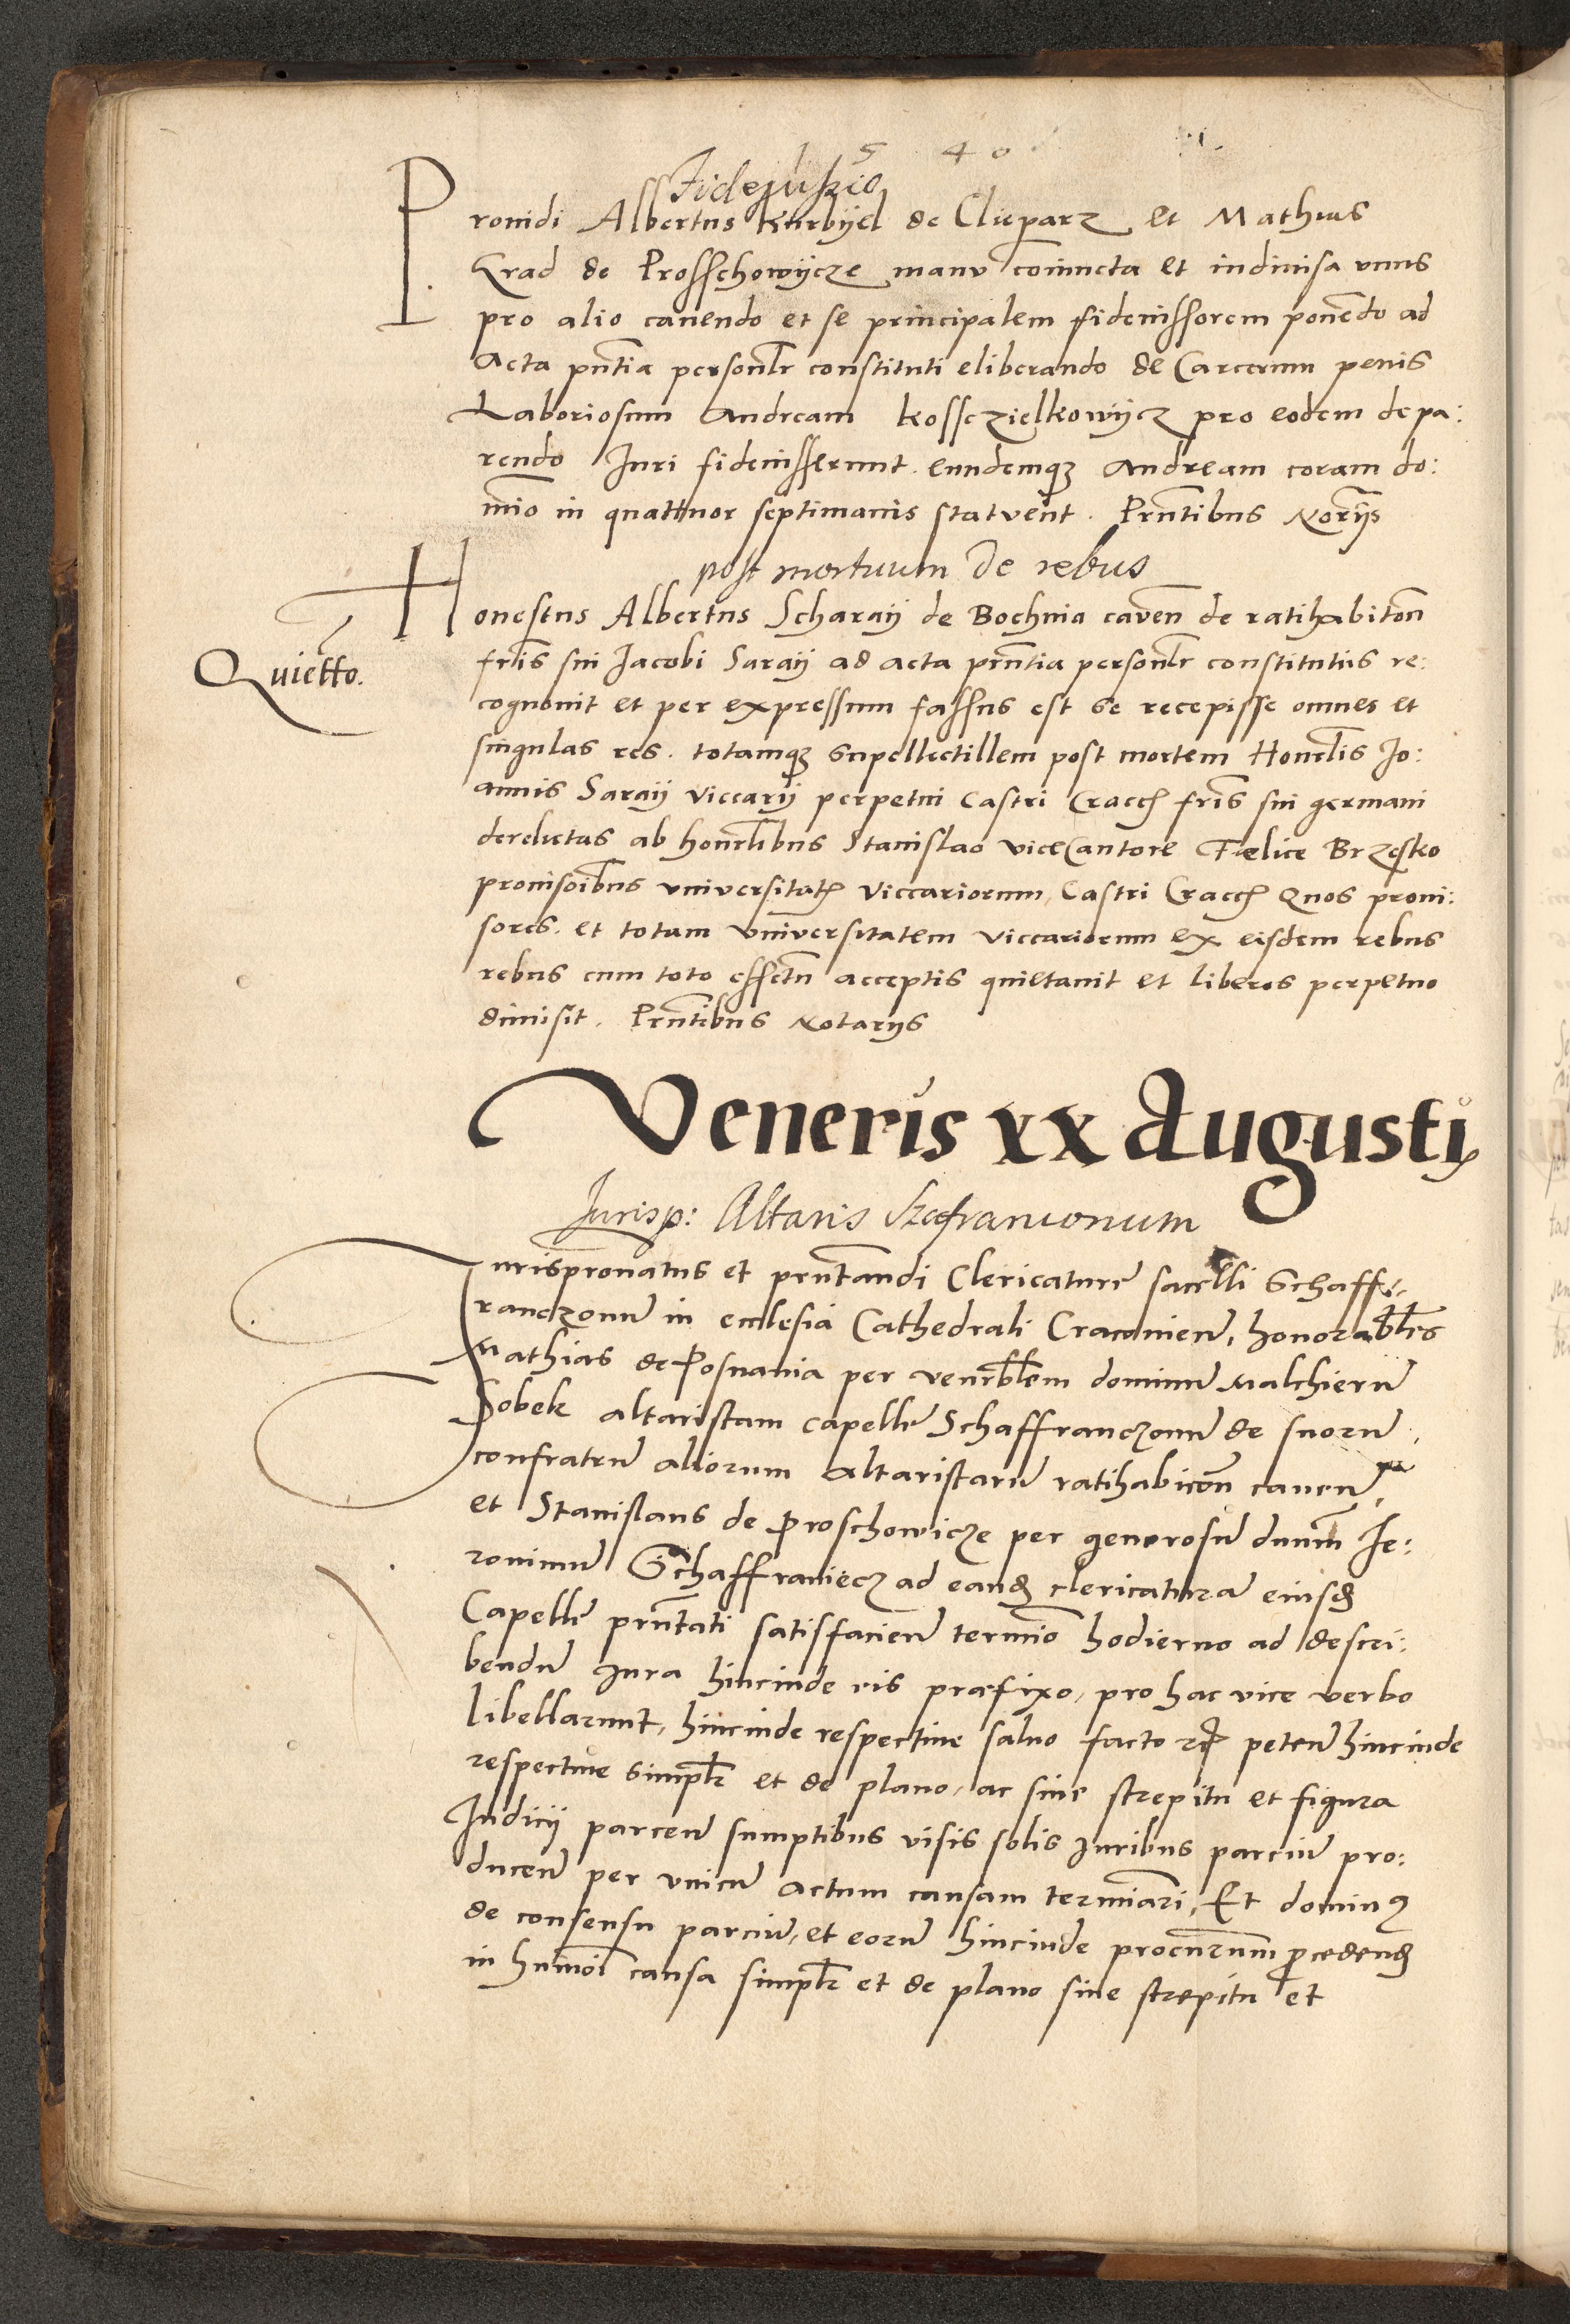 1 5 4 0
Fidejussio
Prouidi Albertus Kurbyel de Clieparz et Mathias
Grad de Prosschowycze manu coniuncta et indiuisa vnus
pro alio cauendo et se principalem fideiussorem ponendo ad
Acta pntia personlr constituti eliberando de Carcerum penis
Laboriosum Andream Kossczielkowycz pro eodem de pa:
rendo Iuri fideiusserunt eundemqz Andream coram do:
mino in quattuor septimanis statuent. Prntibus Notariis
post mortuum de rebus
Honestus Albertus Scharaij de Bochnia caven de ratihabiton
Quietto.
fris sui Jacobi Saraij ad acta prntia personlr constitutus re:
cognouit et per expressum fassus est se recepisse omnes et
singulas res. totamqz supellectillem post mortem Honrlis Jo:
annis Saraij Viccarij perpetui Castri Cracch fris sui germani
derelictas ab honrlibus Stanislao viceCantore Felice Brzesko
prouisoribus vniversitatis Viccariorum Castri Cracch Quos proui:
sores. et totam vniversitatem viccariorum ex eisdem rebus
rebus cum toto effectu acceptis quietauit et liberos perpetuo
dimisit. Prntibus Notarijs
Veneris xx Augusti
Jurisp: Altaris Szafrancorum
Jurispronatus et prntandi Clericature sacelli Schaff
ranczonu in ecclesia Cathedrali Cracouien, honorabbles
Mathias de Posnania per venrblem dominu Malchieru
Sobek altaristam capelle Schaffranczonu de suoru
confratru aliorum altaristaru ratihabicon cauen,
et Stanislaus de Proschowicze per generosu dnum Je:
ronimu Schaffraniecz ad eand clericatura eiusd
Capelle prntati satisfacien termio hodierno ad descri:
bendu Jura hincinde eis praefixo, pro hac vice verbo
libellarunt, hincinde respectiue saluo facto peten hincinde
respectiue simplr et de plano, ac sine strepitu et figura
Judicij parcen sumptibus visis solis Juribus parciu pro:
ducen per vnicu actum causam termiari, Et dominus
de consensu parciu, et eoru hincinde procurum procedend
in huiusmoi causa simplr et de plano sine strepitu et